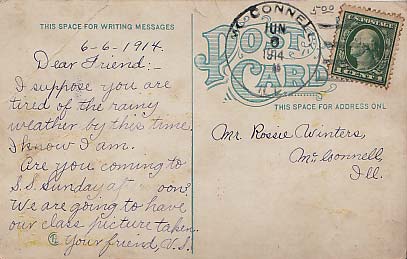 THIS SPACE FOR WRITING MESSAGES
6-6-1914.
Dear Friend:-
I suppose you are
tired of the rainy
weather by this time.
I know I am.
Are you coming to
S.S. Sunday at oon?
We are going to have
our class picture taken.
Your friend, V.S.
POST CARD
McCONNELL
JUN
1914
U.S. POSTAGE
1 CENT 1
THIS SPACE FOR ADDRESS ONL
Mr. Rossie Winters,
McConnell,
Ill.